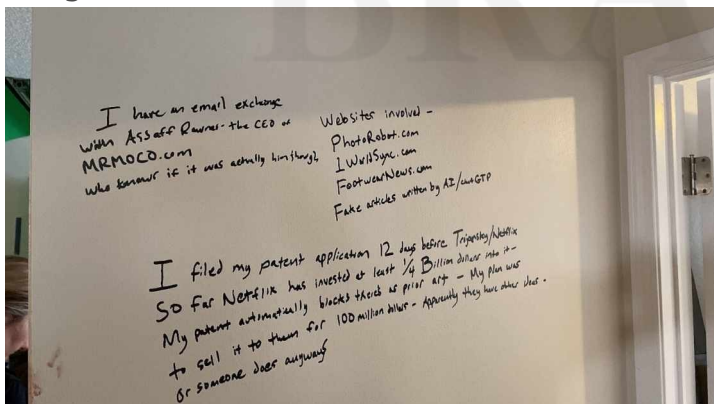 I have an email exchange
with Assaff Rawner - the CEO of
MRMOCO.com
who knows if it was actually him though
Websites involved -
PhotoRobot.com
1WorldSync.com
FootwearNews.com
Fake articles written by AI/chatGTP
I filed my patent application 12 days before Tripansky/Netflix
So far Netflix has invested at least 1/4 Billion dollars into it -
My patent automatically blocks theirs as prior art - My plan was
to sell it to them for 100 million dollars - Apparently they have other ideas -
or someone does anyways